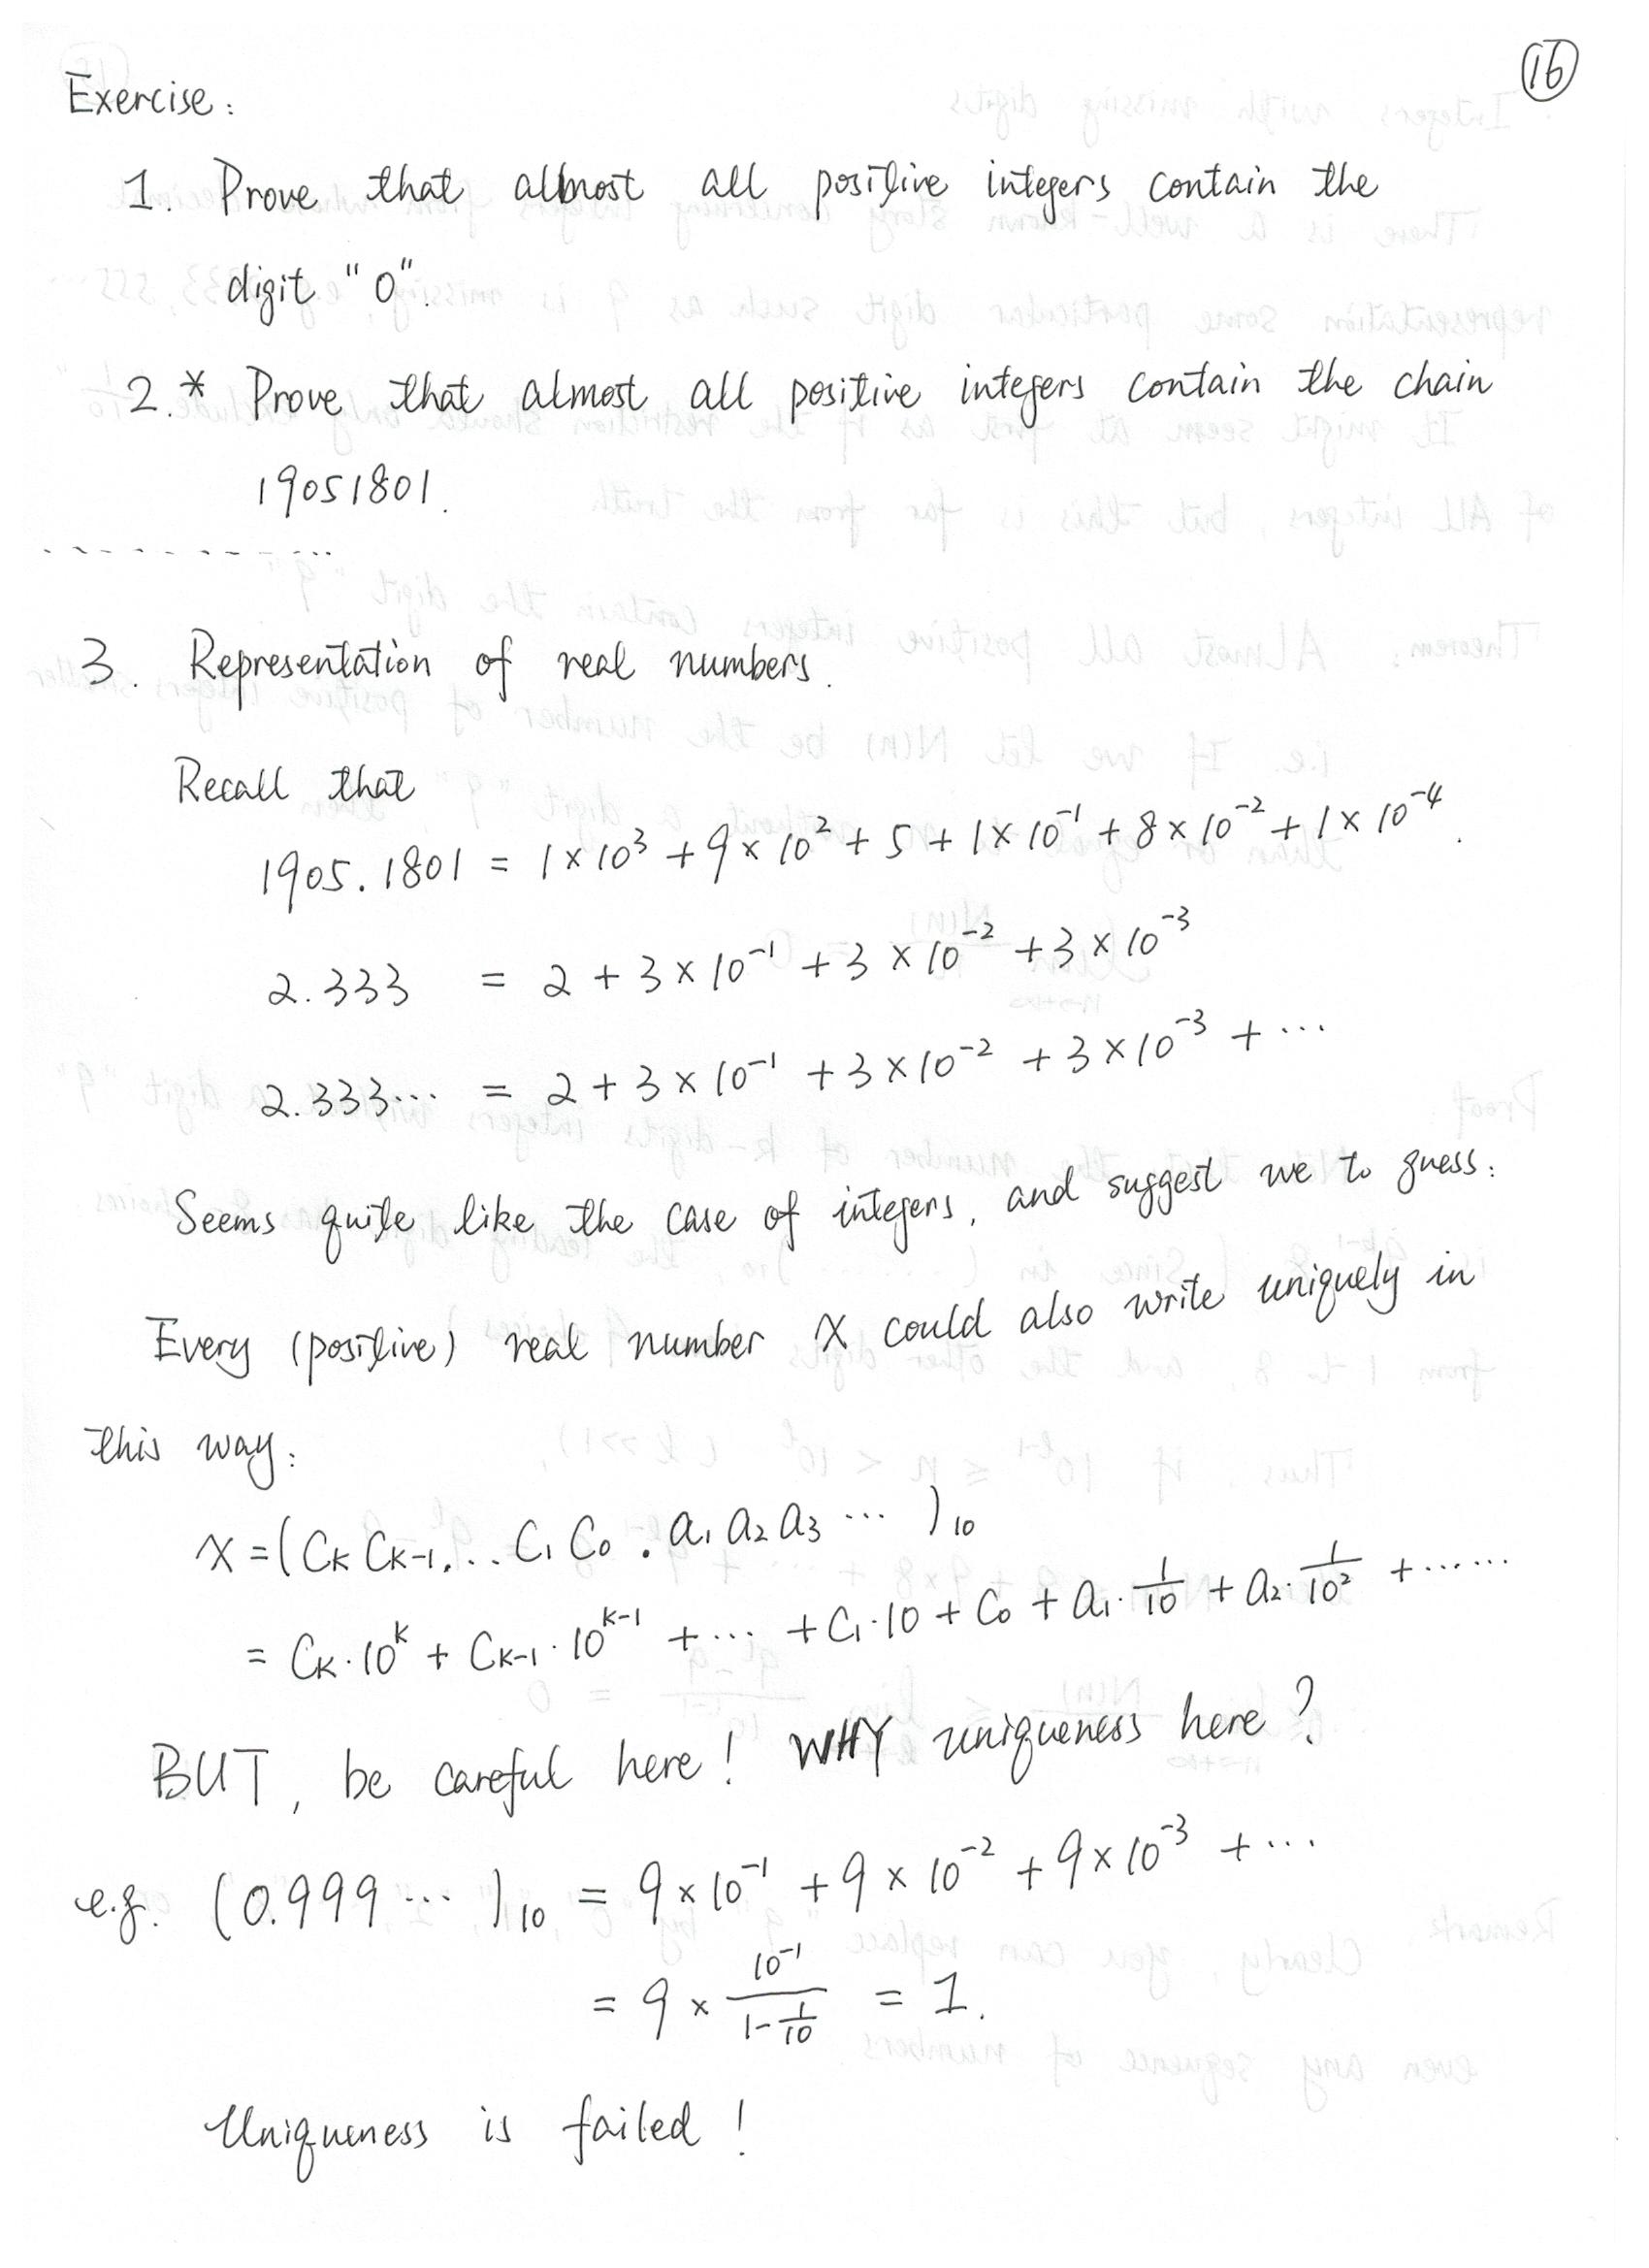 16
Exercise:
1. Prove that almost all positive integers contain the
digit "0".
2.* Prove that almost all positive integers contain the chain
19051801.
3. Representation of real numbers.
Recall that
1905.1801 = 1×10³ + 9×10² + 5 + 1×10⁻¹ + 8×10⁻² + 1×10⁻⁴.
2.333 = 2 + 3×10⁻¹ + 3×10⁻² + 3×10⁻³
2.333... = 2 + 3×10⁻¹ + 3×10⁻² + 3×10⁻³ + ...
Seems quite like the case of integers, and suggest we to guess:
Every (positive) real number x could also write uniquely in
this way:
x = (C_K C_{K-1}... C₁ C₀ . a₁ a₂ a₃ ... )₁₀
= C_K·10^K + C_{K-1}·10^{K-1} + ... + C₁·10 + C₀ + a₁·1/10 + a₂·1/10² + ......
BUT, be careful here! WHY uniqueness here?
e.g. (0.999 ... )₁₀ = 9×10⁻¹ + 9×10⁻² + 9×10⁻³ + ...
= 9 × 10⁻¹/(1-1/10) = 1.
Uniqueness is failed!